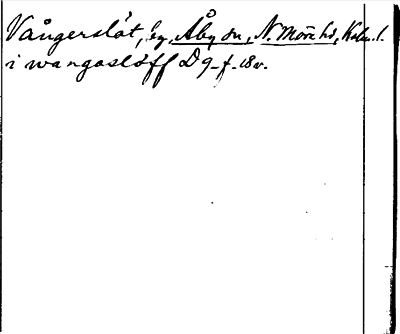 Vångerslät, by, Åby sn, N. Möre hd, Kalm. l.
i wangasløff D 9 f. 18 v.